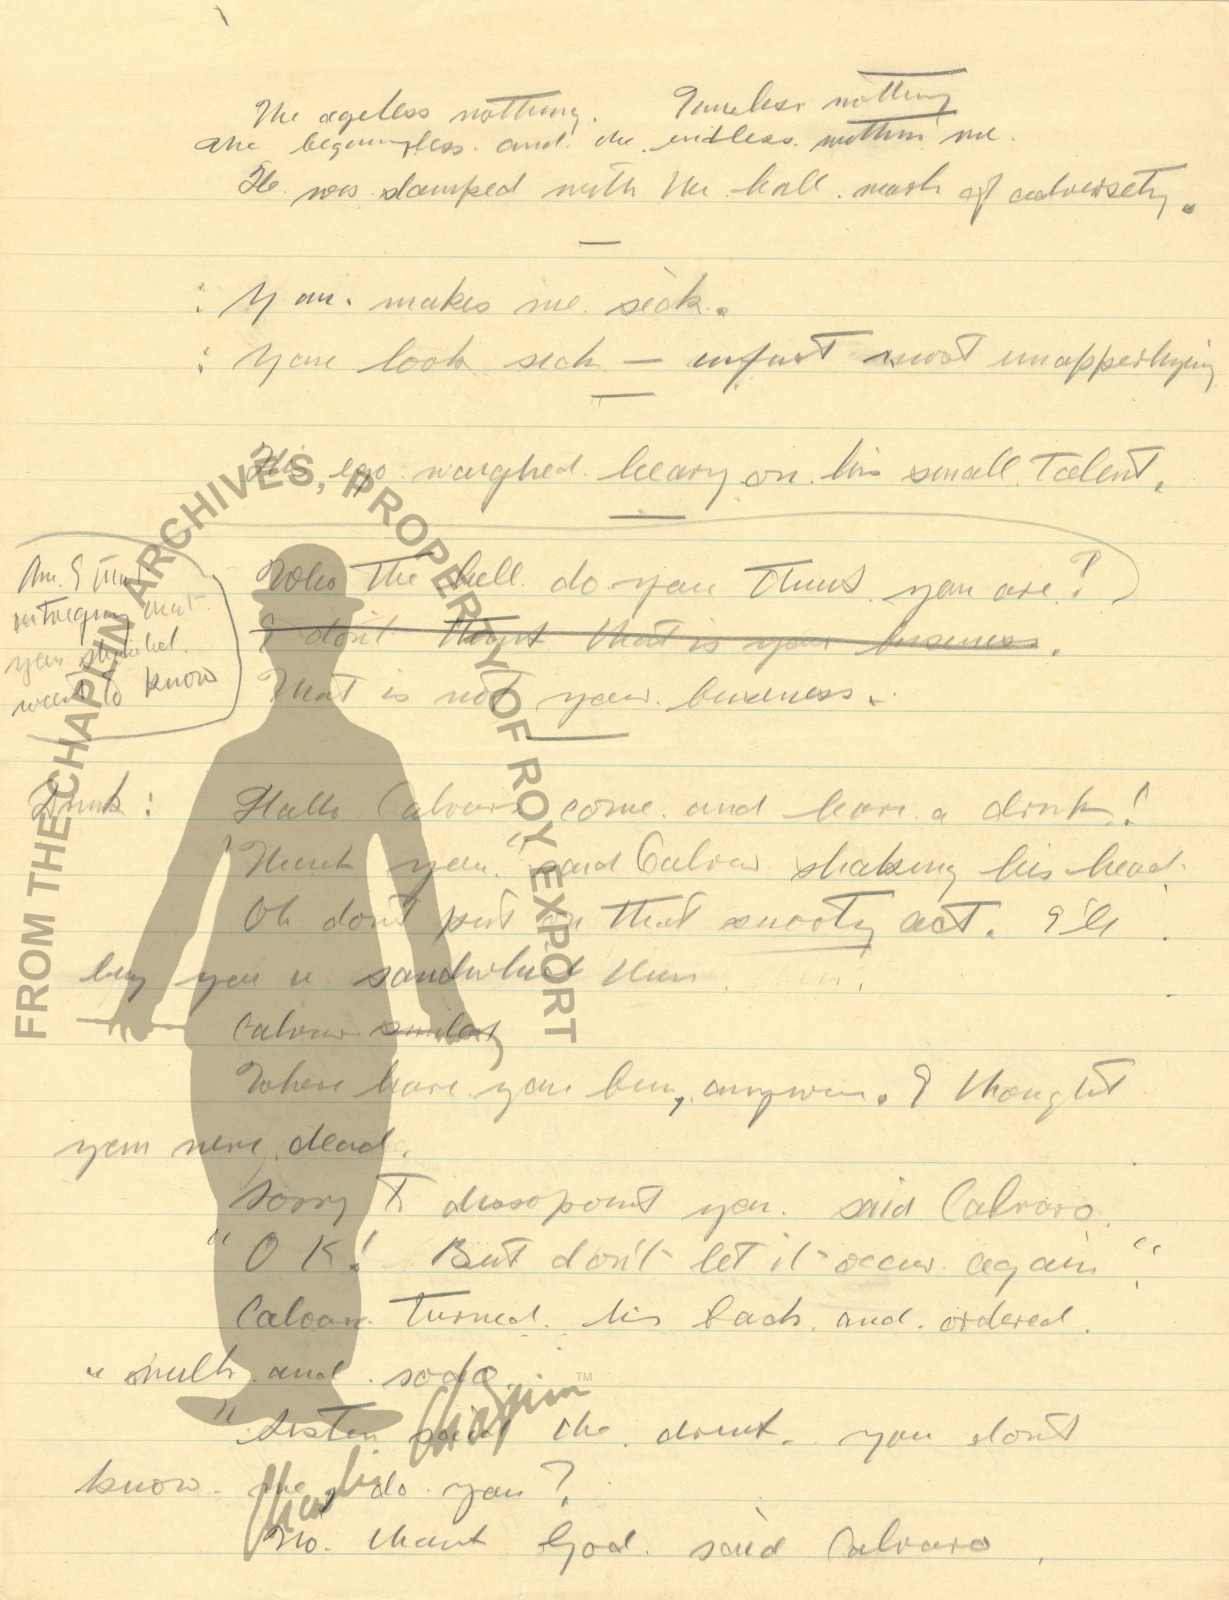 The ageless nothing. Timeless nothing
The beginningless and the endless within me.
He was stamped with the hall mark of adversety.
: You makes me sick.
: You look sick —
His ego weighed heavy on his small talent.
Who the hell do you think you are?
Am I that
intreguing that
you should
want to know
I don't that is your buseness.
That is not your buseness.
Drunk: Hallo Calvaro come and have a drink!
"Thank you." said Calvaro shaking his head.
Oh don't put on that snooty act. I'll
buy you a sandwhich then.
Calvaro smiled
Where have you been, anywere. I thought
you were dead.
Sorry to dissopoint you. said Calvaro.
"O K! But don't let it occur again".
Calvaro turned his back and ordered
a milk and soda.
"Listen said the drunk. you dont
know me, do you?
No. thank God. said Calvaro.
FROM THE CHAPLIN ARCHIVES, PROPERTY OF ROY EXPORT
Charlie Chaplin™